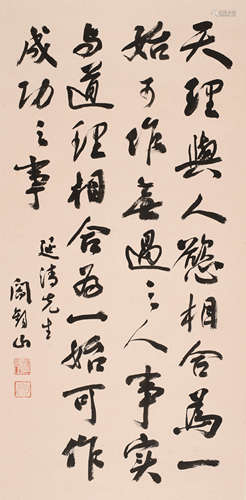 天理與人慾相合為一
始可作無過之人事實
與道理相合為一始可作
成功之事
延清先生
閻錫山